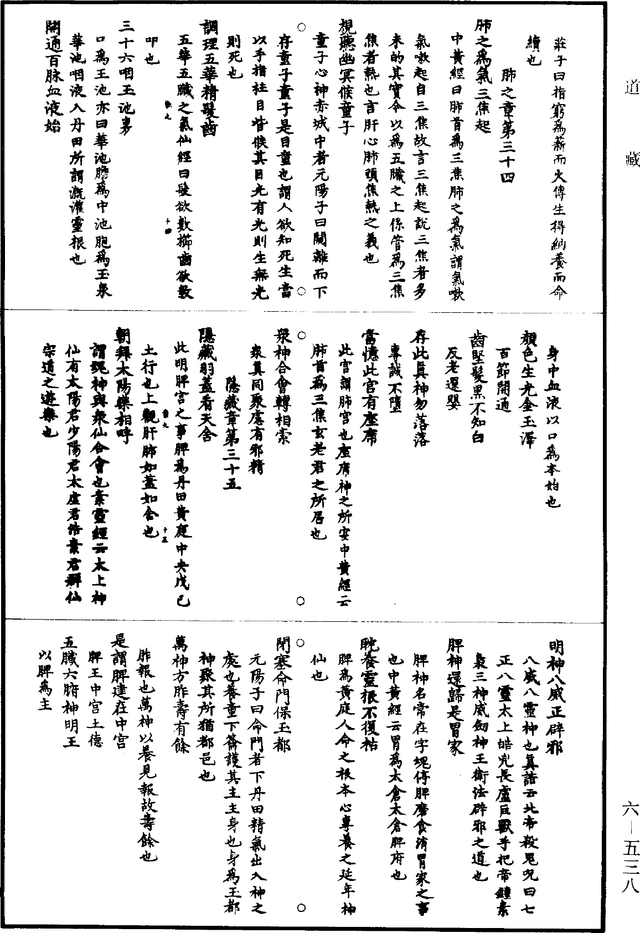 道藏
莊子曰指窮為薪而火傳生得納養而命
續也
肺之章第三十四
肺之為氣三焦起
中黃經曰肺首為三焦肺之為氣謂氣嗽
氣嗽起自三焦故言三焦起說三焦者多
未的其實今以為五臟之上係管為三焦
焦者熱也言肝心肺頭焦熱之義也
視聽幽冥候童子
童子心神赤城中者元陽子曰闕離而下
存童子童子是目童也謂人欲知死生當
以手指柱目眥候其目光有光則生無光
則死也
調理五華精髮齒
五華五臟之氣仙經曰髮欲數櫛齒欲數
叩也
三十六咽玉池裏
口為玉池亦曰華池膽為中池胞為玉泉
華池咽液入丹田所謂溉灌靈根也
開通百脉血液始
身中血液以口為本始也
顏色生光金玉澤
百節開通
齒堅髮黑不知白
反老還嬰
存此真神勿落落
專誠不墮
當憶此宮有座席
此宮謂肺宮也座席神之所安中黃經云
肺首為三焦玄老君之所居也
眾神合會轉相索
眾真同聚慮有邪精
隱藏章第三十五
隱藏羽蓋看天舍
此明脾宮之事脾為丹田黃庭中央戊己
土行也上觀肝肺如蓋如舍也
朝拜太陽樂相呼
謂魂神與眾仙合會也素靈經云太上神
仙有太陽君少陽君太虛君浩素君群仙
宗道之遊樂也
明神八威正辟邪
八威八靈神也真誥云北帝殺鬼呪曰七
正八靈太上皓兇長顱巨獸手把帝鍾素
梟三神威劍神王衛法辟邪之道也
脾神還歸是胃家
脾神名常在字魂停脾磨食消胃家之事
也中黃經云胃為太倉太倉脾府也
耽養靈根不復枯
脾為黃庭人命之根本心專養之延年神
仙也
閉塞命門保玉都
元陽子曰命門者下丹田精氣出入神之
處也養童下篇護其主主身也身為玉都
神聚其所猶都邑也
萬神方胙壽有餘
胙報也萬神以養見報故壽餘也
是謂脾建在中宮
脾王中宮土德
五臟六腑神明王
以脾為主
六—五三八